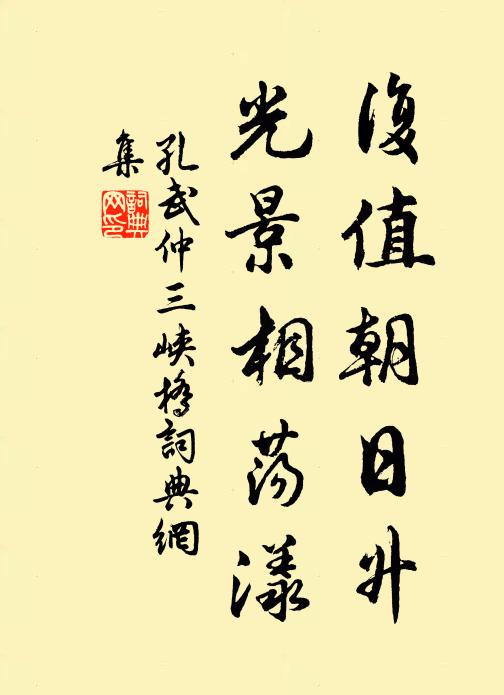 復值朝日升
光景相荡漾
孔武仲三峽橋詞典網
集
詞典
网印